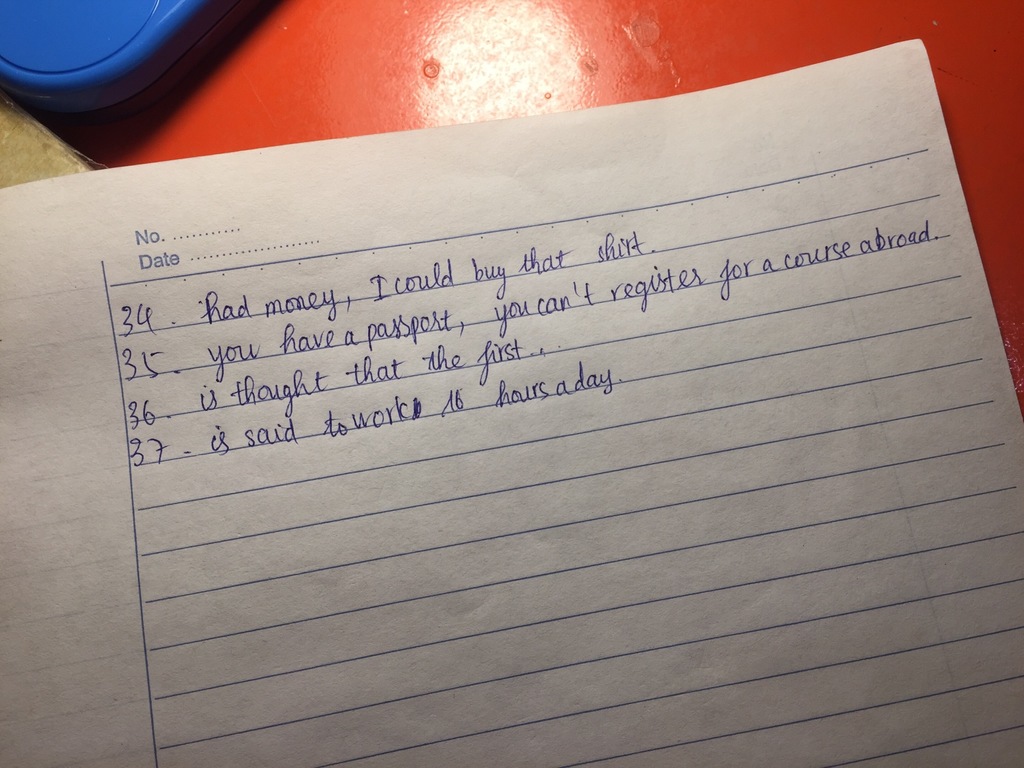 No. ...........
Date .....................
34. had money, I could buy that shirt.
35. you have a passport, you can't register for a course abroad.
36. is thought that the first...
37. is said to work 16 hours a day.